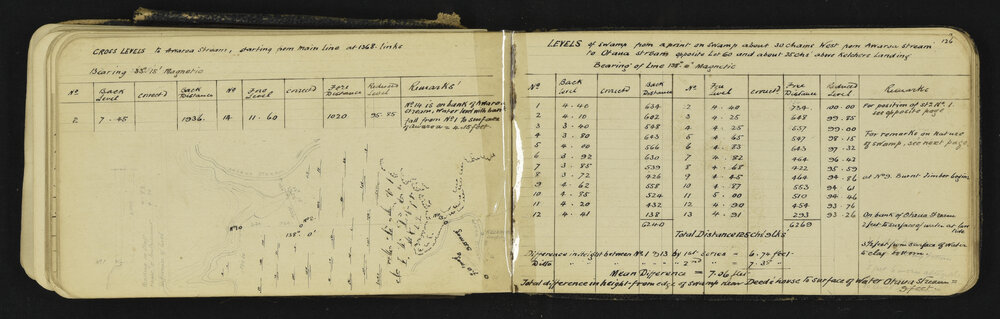 CROSS LEVELS to Awaroa Stream, starting from Main line at 1368 links
Bearing 35°15' Magnetic
No Back Level corrected Back Distance No Fore Level corrected Fore Distance Reduced Level Remarks
2 7.45 1036 14 11.60 1020 95.85 No 14 is on bank of Awaroa
Stream, Water level with bank
fall from No 1 to surface
4.15 feet
138° 0'
126
LEVELS of swamp from a point on swamp about 30 chains West from Awaroa Stream
to Otaua Stream opposite Lot 60 and about 25 Chs above Kelshire Landing
Bearing of Line 138° 0' Magnetic
No Back Level corrected Back Distance No Fore Level corrected Fore Distance Reduced Level Remarks
1 4.40 634 2 4.40 734 100.00 For position of No 1.
2 4.10 602 3 4.25 648 99.85 see opposite page
3 3.40 548 4 4.25 537 99.00
4 3.80 643 5 4.65 547 98.15 For remarks on nature
5 4.00 566 6 4.83 643 97.32 of swamp, see next page.
6 3.92 630 7 4.82 464 96.42
7 3.85 539 8 4.68 422 95.59
8 3.72 426 9 4.45 464 94.86 at No 9. Burnt Timber begins
9 4.62 558 10 4.87 553 94.61
10 4.85 524 11 5.00 510 94.46
11 4.20 432 12 4.90 454 93.76
12 4.41 138 13 4.91 293 93.26 On bank of Otaua Stream
6240 6269 2 feet to surface of water at low
tide
Total Distance 125 Chs 9 lks
3½ feet from surface of water
to clay bottom.
Difference in height between No 1 & 13 by 1st series = 6.74 feet
Ditto 2nd = 7.38
Mean Difference = 7.06 feet
Total difference in height from edge of swamp near Deed's house to surface of Water Otaua Stream =
9 feet